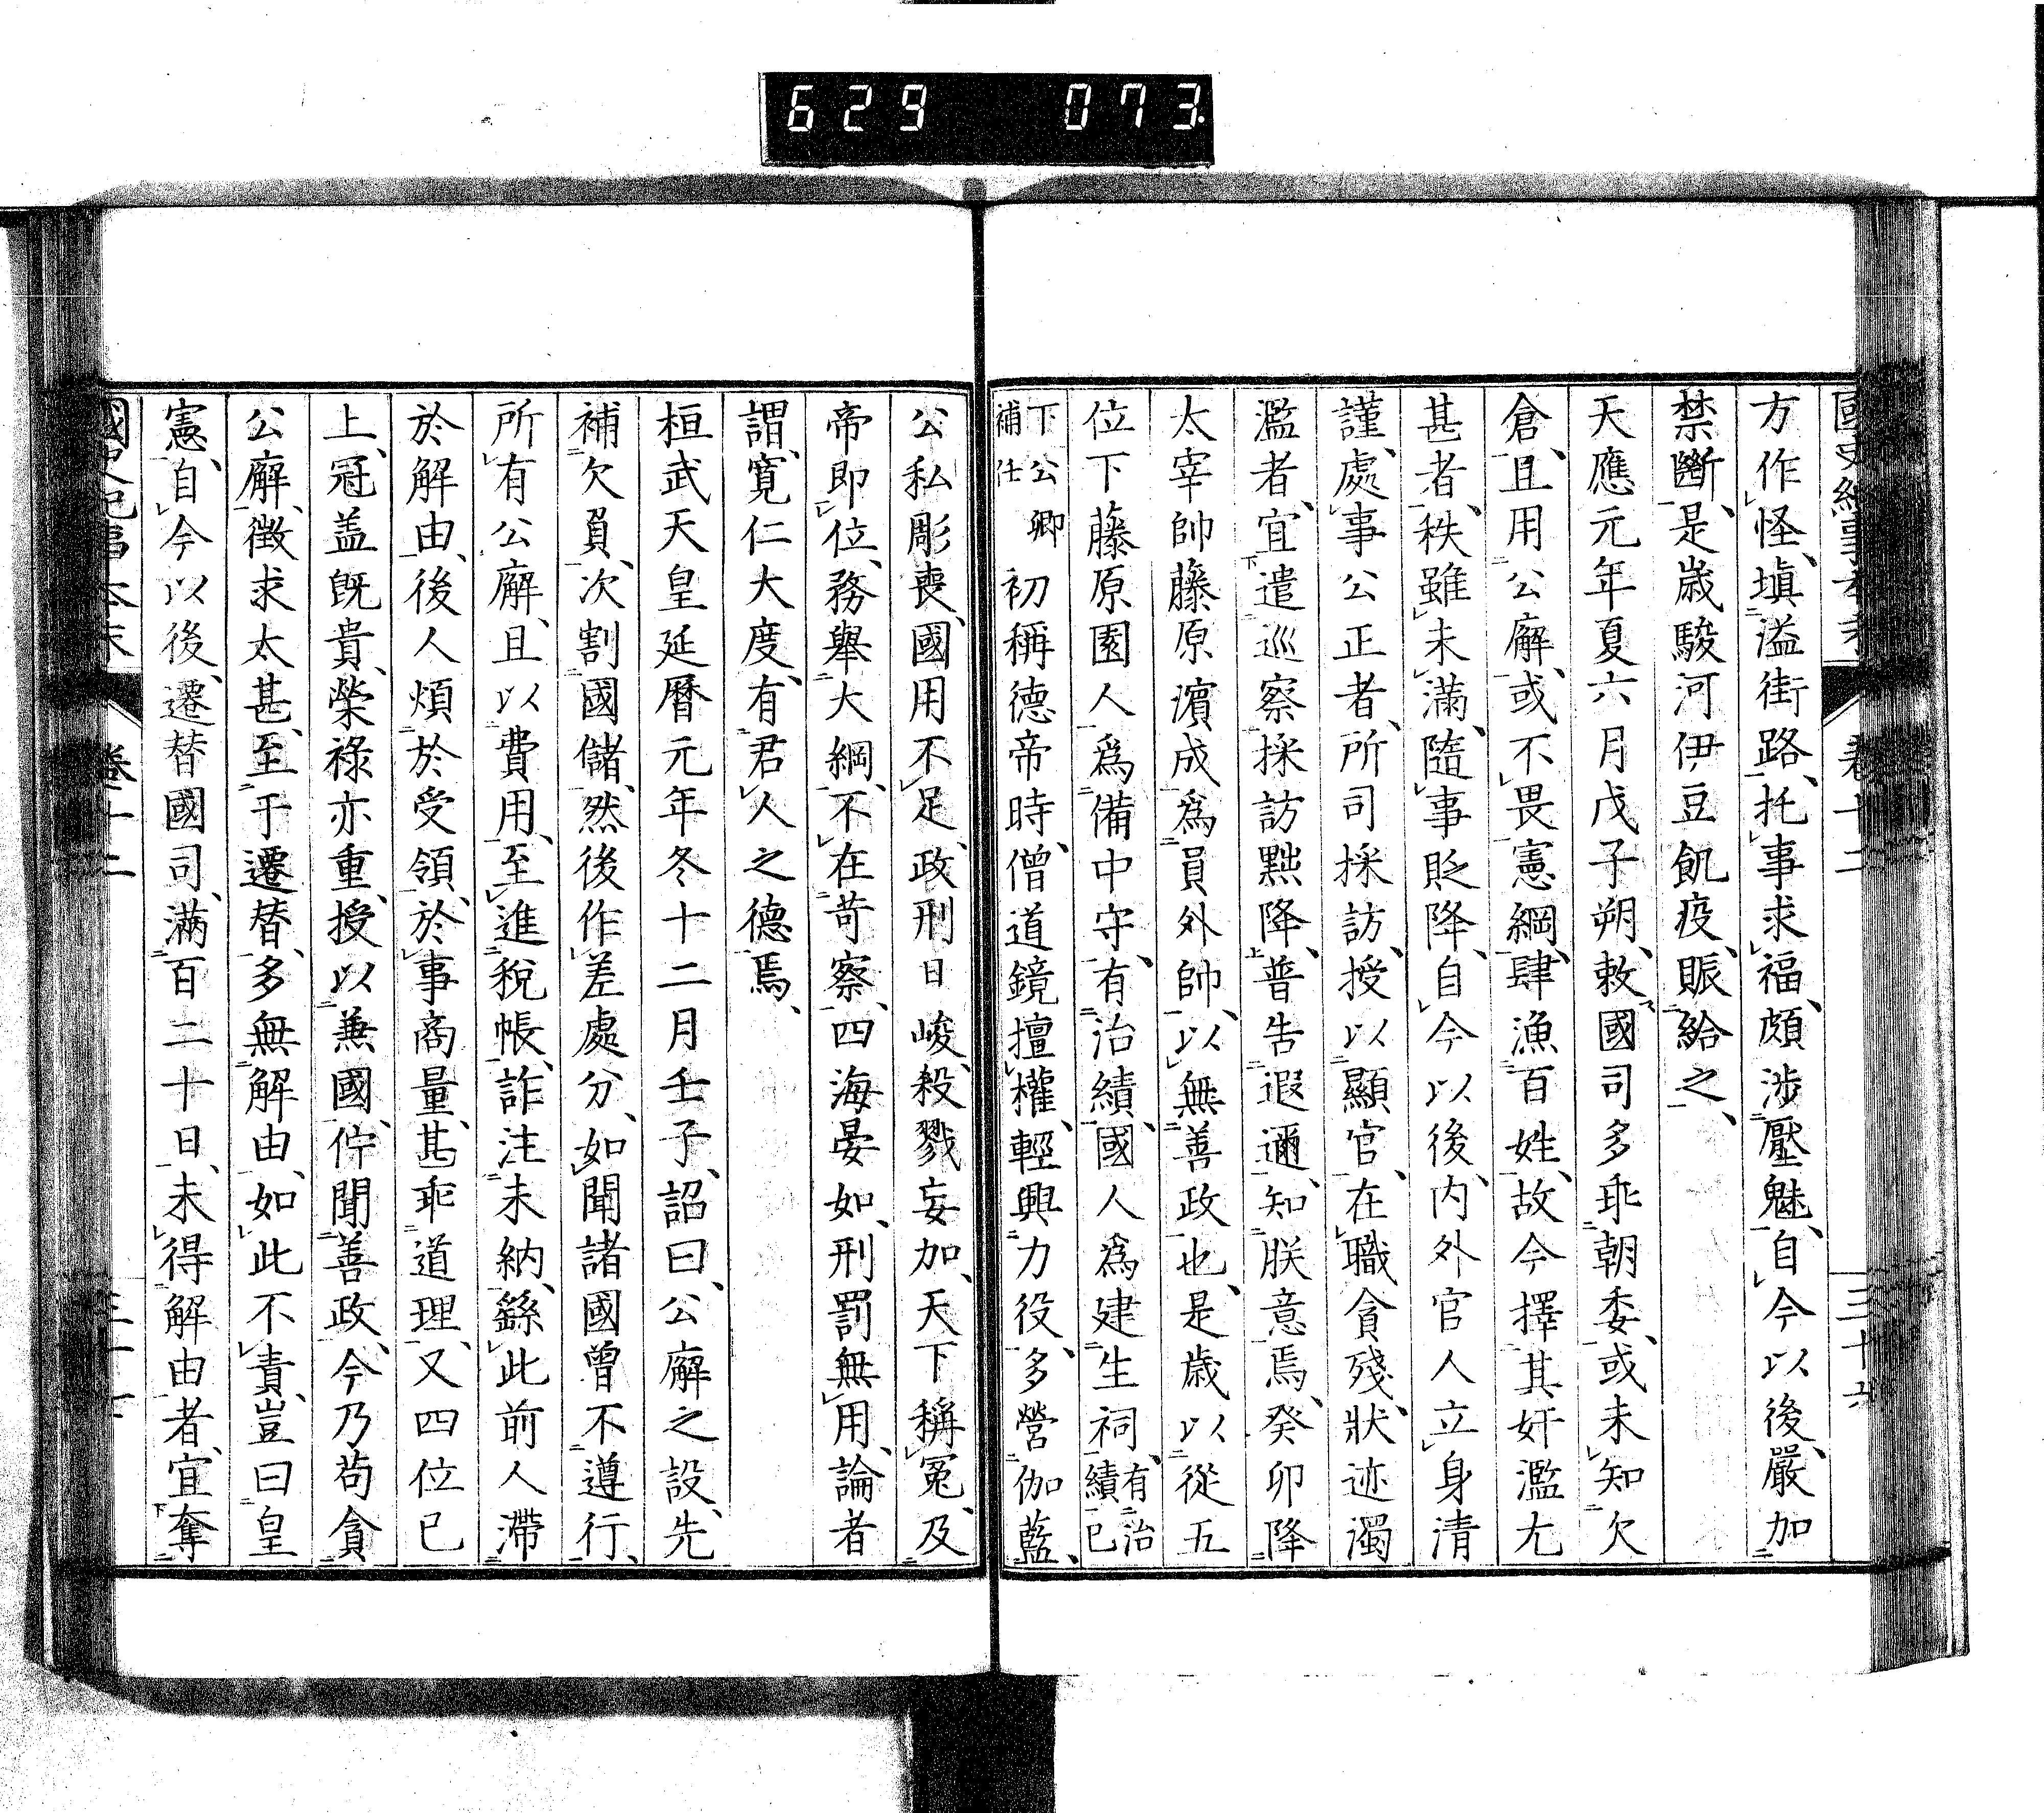 629 073
方作怪、塡溢街路、托事求福、頗涉壓魅、自今以後、嚴加
禁斷、是歲駿河伊豆飢疫、賑給之、
天應元年夏六月戊子朔、敕國司多乖朝委、或未知欠
倉、且用公廨、或不畏憲綱、肆漁百姓、故今擇其奸濫尤
甚者、秩雖未滿、隨事貶降、自今以後、内外官人立身清
謹、處事公正者、所司採訪、授以顯官、在職貪殘、狀迹濁
濫者、宜遣巡察採訪黜降、普告遐邇、知朕意焉、癸卯降
太宰帥藤原濱成爲員外帥、以無善政也、是歲以從五
位下藤原園人爲備中守、有治績、國人爲建生祠、有治績已
下公卿補任初稱德帝時、僧道鏡擅權、輕興力役、多營伽藍、
公私彫喪、國用不足、政刑日峻、殺戮妄加、天下稱冤、及
帝即位、務舉大綱、不在苛察、四海晏如、刑罰無用、論者
謂、寬仁大度、有君人之德焉、
桓武天皇延曆元年冬十二月壬子、詔曰、公廨之設、先
補欠負、次割國儲、然後作差處分、如聞諸國曾不遵行、
所有公廨、且以費用、至進稅帳、詐注未納、繇此前人滯
於解由、後人煩於受領、於事商量、甚乖道理、又四位已
上、冠盖旣貴、榮祿亦重、授以兼國、佇聞善政、今乃苟貪
公廨、徵求太甚、至于遷替、多無解由、如此不責、豈曰皇
憲、自今以後、遷替國司、滿百二十日、未得解由者、宜奪
國史紀事本末 卷十二